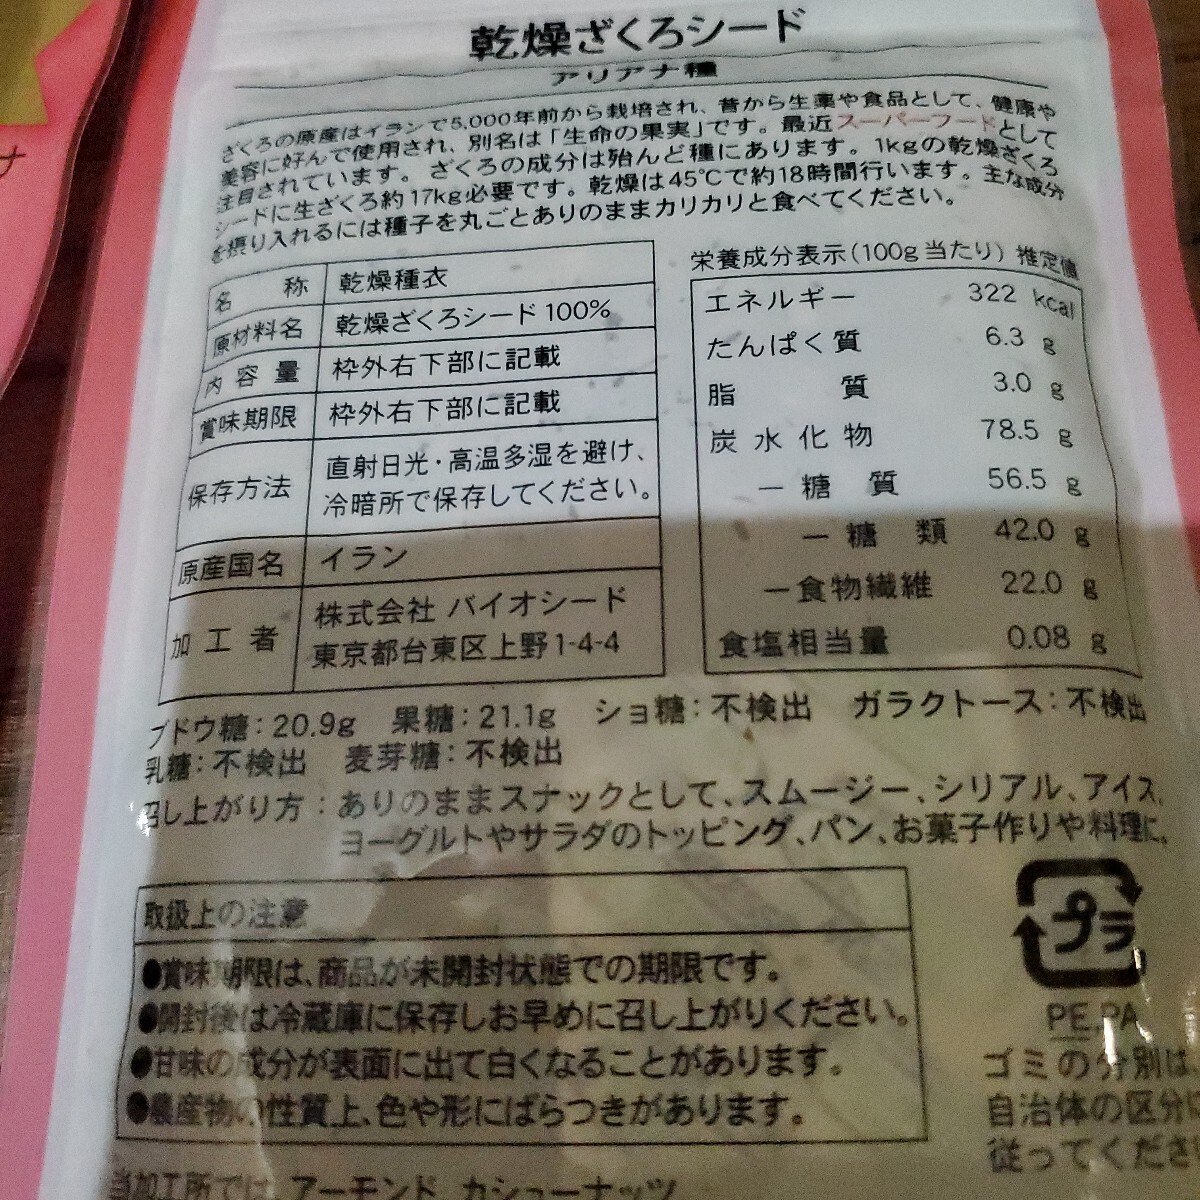 乾燥ざくろシード
アリアナ種
ざくろの原産はイランで5,000年前から栽培され、昔から生薬や食品として、健康や
美容に好んで使用され、別名は「生命の果実」です。最近スーパーフードとして
注目されています。ざくろの成分は殆んど種にあります。1kgの乾燥ざくろ
シードに生ざくろ約17kg必要です。乾燥は45℃で約18時間行います。主な成分
を摂り入れるには種子を丸ごとありのままカリカリと食べてください。
名称 乾燥種衣
原材料名 乾燥ざくろシード100%
内容量 枠外右下部に記載
賞味期限 枠外右下部に記載
保存方法 直射日光・高温多湿を避け、
冷暗所で保存してください。
原産国名 イラン
加工者 株式会社 バイオシード
東京都台東区上野1-4-4
栄養成分表示(100g当たり) 推定値
エネルギー 322 kcal
たんぱく質 6.3 g
脂質 3.0 g
炭水化物 78.5 g
ー糖質 56.5 g
ー糖類 42.0 g
ー食物繊維 22.0 g
食塩相当量 0.08 g
ブドウ糖:20.9g 果糖:21.1g ショ糖:不検出 ガラクトース:不検出
乳糖:不検出 麦芽糖:不検出
召し上がり方:ありのままスナックとして、スムージー、シリアル、アイス、
ヨーグルトやサラダのトッピング、パン、お菓子作りや料理に。
取扱上の注意
●賞味期限は、商品が未開封状態での期限です。
●開封後は冷蔵庫に保存しお早めに召し上がりください。
●甘味の成分が表面に出て白くなることがあります。
●農産物の性質上、色や形にばらつきがあります。
プラ
PE,PA
ゴミの分別は、
自治体の区分に
従ってくださ
当加工所では、アーモンド、カシューナッツ